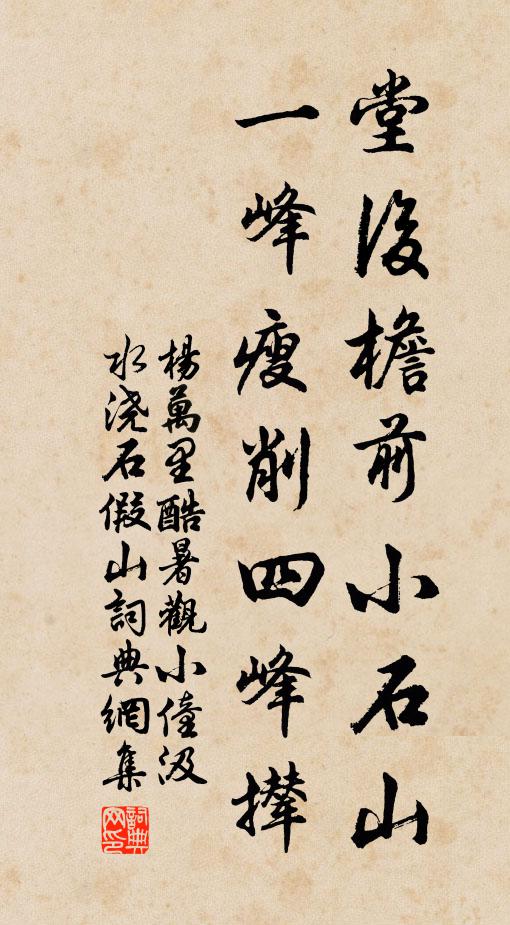 堂後檐前小石山
一峰瘦削四峰攆
楊萬里酷暑觀小僮汲
水浇石假山詞典網集
詞典网印